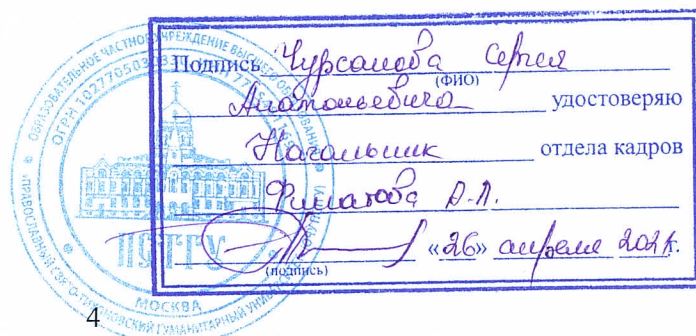 Подпись Чурсанова Сергея
(ФИО)
Анатольевича удостоверяю
Начальник отдела кадров
Филатова
(подпись) «26» апреля
ОБРАЗОВАТЕЛЬНОЕ ЧАСТНОЕ УЧРЕЖДЕНИЕ ВЫСШЕГО ОБРАЗОВАНИЯ
«ПРАВОСЛАВНЫЙ СВЯТО-ТИХОНОВСКИЙ ГУМАНИТАРНЫЙ УНИВЕРСИТЕТ»
ОГРН
ПСТГУ
МОСКВА
4